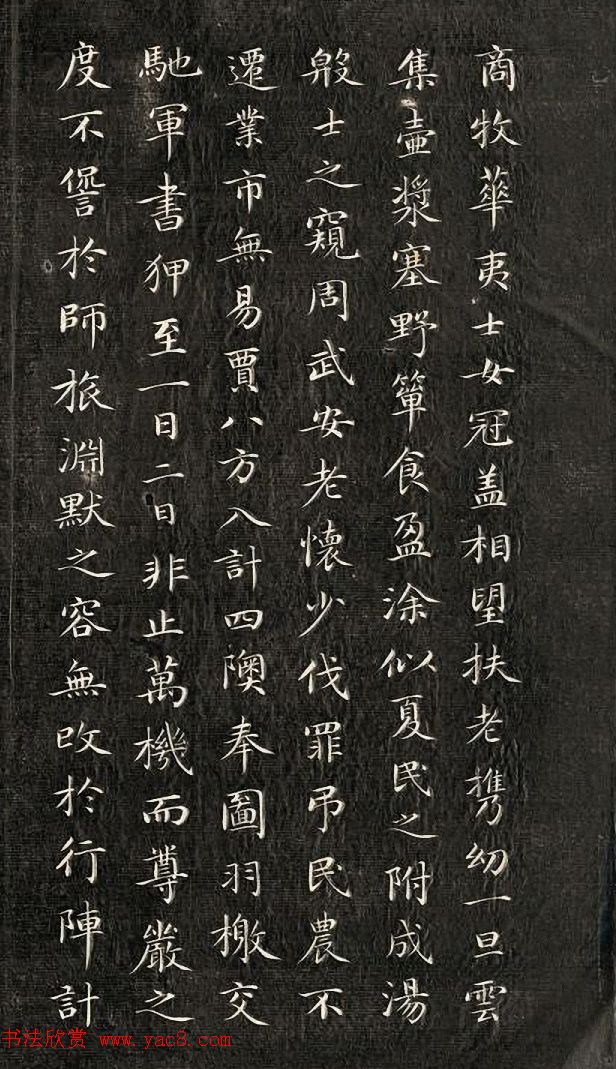 商牧華夷士女冠盖相望扶老携幼一旦雲
集壷漿塞野簞食盈涂似夏民之附成湯
殷士之窺周武安老懷少伐罪弔民農不
遷業市無易賈八方入計四隩奉圖羽檄交
馳軍書狎至一日二日非止萬機而尊嚴之
度不諐於師旅淵默之容無改於行陣計
书法欣赏 www.yac8.com